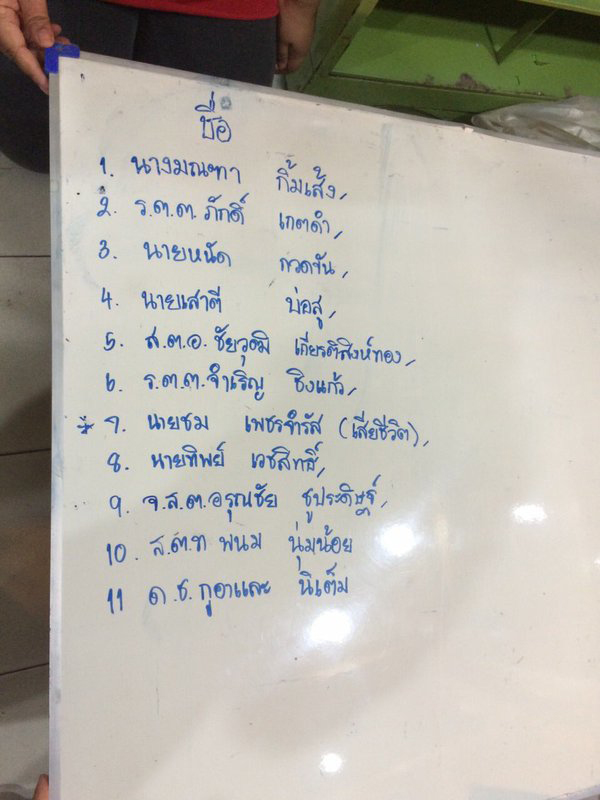 ชื่อ
1. นางมณฑา กิ้มเส้ง,
2. ร.ต.ต. ภักดิ์ เกตดำ,
3. นายหนัด กวดขัน,
4. นายเสาตี บ่อสู,
5. ส.ต.อ. ชัยวุฒิ เกียรติสิงห์ทอง,
6. ร.ต.ต. จำเริญ ชิงแก้ว,
* 7. นายชม เพชรจำรัส (เสียชีวิต),
8. นายทิพย์ เวชสิทธิ์,
9. จ.ส.ต. อรุณชัย ชูประดิษฐ์,
10. ส.ต.ท พนม นุ่มน้อย
11 ด.ช. กูอาและ นิเต็ม